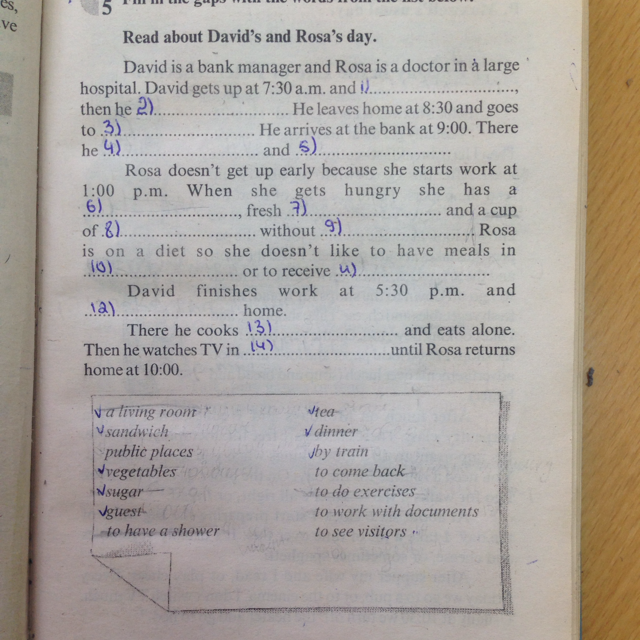 es,
ve
5 Fill in the gaps with the words from the list below.
Read about David's and Rosa's day.
David is a bank manager and Rosa is a doctor in a large
hospital. David gets up at 7:30 a.m. and 1)..............................,
then he 2).............................. He leaves home at 8:30 and goes
to 3).............................. He arrives at the bank at 9:00. There
he 4).............................. and 5)..............................
Rosa doesn't get up early because she starts work at
1:00 p.m. When she gets hungry she has a
6).............................., fresh 7).............................. and a cup
of 8).............................. without 9).............................. Rosa
is on a diet so she doesn't like to have meals in
10).............................. or to receive 11)..............................
David finishes work at 5:30 p.m. and
12).............................. home.
There he cooks 13).............................. and eats alone.
Then he watches TV in 14)..............................until Rosa returns
home at 10:00.
a living room tea
sandwich dinner
public places by train
vegetables to come back
sugar to do exercises
guest to work with documents
to have a shower to see visitors